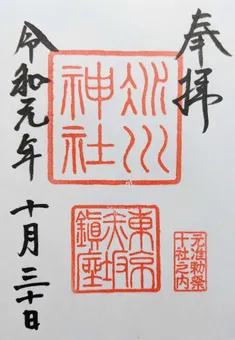 奉拝
氷川神社
東京赤坂鎮座
元准勅祭十社之内
令和元年 十月三十日